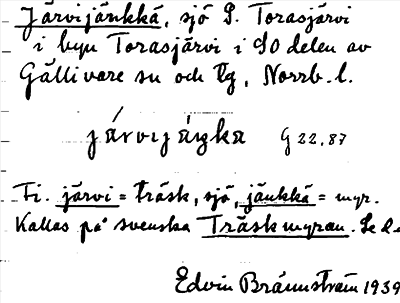 Järvijänkkä, sjö S. Torasjärvi
i byn Torasjärvi i SO delen av
Gällivare sn och tg, Norrb. l.
járvijáŋka G 22, 87
Fi. järvi = träsk, sjö, jänkkä = myr.
Kallas på svenska Träskmyran. Se d.
Edvin Brännström 1939